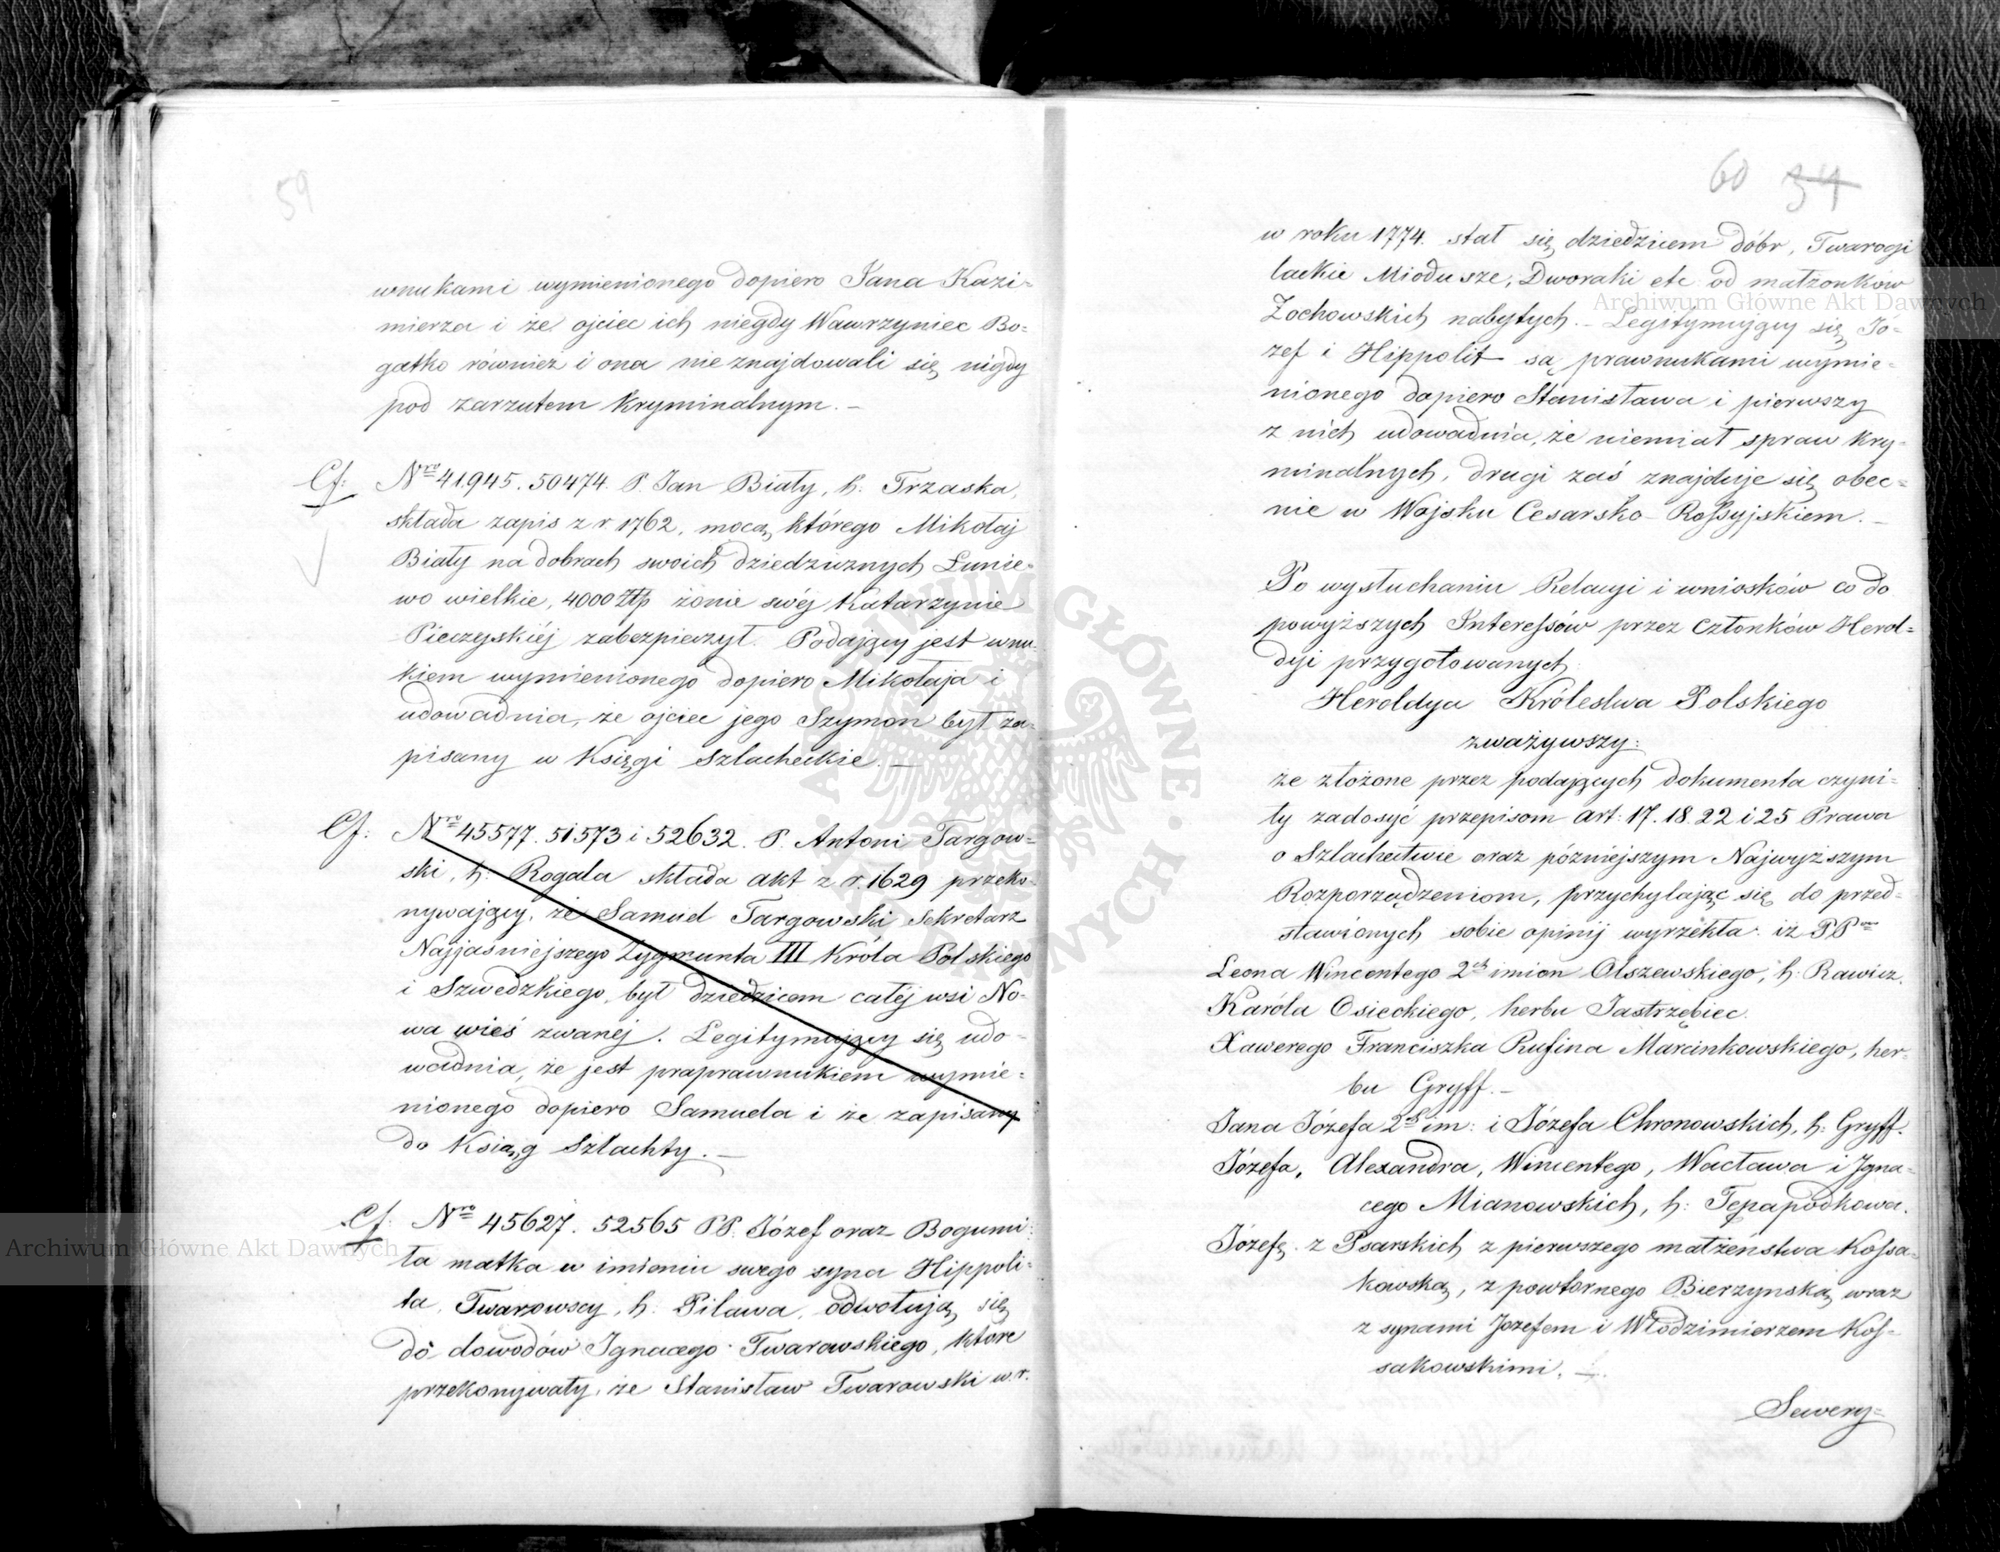 59
wnukami wymienionego dopiero Jana Kazi=
mierza i że ojciec ich niegdy Wawrzyniec Bo=
gatko również i ona nie znajdowali się nigdy
pod zarzutem kryminalnym. —
Cf: Nro 41945. 50474. P. Jan Biały, h: Trzaska,
składa zapis z r 1762, mocą którego Mikołaj
Biały na dobrach swoich dziedzicznych Łunie=
wo wielkie, 4000 Złp żonie swéj Katarzynie
Pieczyskiéj zabezpieczył. Podający jest wnu=
kiem wymienionego dopiero Mikołaja i
udowadnia, że ojciec jego Szymon był za=
pisany w Księgi Szlacheckie. —
Cf: Nro 45577. 51573 i 52632. P. Antoni Targow=
ski, h: Rogala składa akt z r. 1629 przeko=
nywający, że Samuel Targowski Sekretarz
Najjaśniejszego Zygmunta III Króla Polskiego
i Szwedzkiego, był dziedzicem całéj wsi No=
wa wieś zwanéj. Legitymujący się udo=
wadnia, że jest praprawnukiem wymie=
nionego dopiero Samuela i że zapisany
do Ksiąg Szlachty. —
Cf: Nro 45627. 52565 PP. Józef oraz Bogumi=
ła matka w imieniu swego syna Hippoli=
ta, Twarowscy, h: Pilawa, odwołują się
do dowodów Ignacego Twarowskiego, które
przekonywały, że Stanisław Twarowski w. r.
60 34
w roku 1774. stał się dziedzicem dóbr, Twarogi
lackie Miodusze, Dworaki etc od małżonków
Żochowskich nabytych. — Legitymujący się Jó=
zef i Hippolit są prawnukami wymie=
nionego dopiero Stanisława i pierwszy
z nich udowadnia, że niemiał spraw kry=
minalnych, drugi zaś znajduje się obec=
nie w Wojsku Cesarsko-Rossyjskiem. —
Po wysłuchaniu Relacyi i wniosków co do
powyższych Interessów przez Członków Herol=
dyi przygotowanych
Heroldya Królestwa Polskiego
zważywszy:
że złożone przez podających dokumenta czyni=
ły zadosyć przepisom art: 17. 18. 22 i 25 Prawa
o Szlachectwie oraz późniejszym Najwyższym
Rozporządzeniom, przychylając się do przed=
stawionych sobie opinij wyrzekła: iż PP
Leona Wincentego 2ch imion Olszewskiego, h: Rawicz.
Karóla Osieckiego, herbu Jastrzębiec.
Xawerego Franciszka Rufina Marcinkowskiego, her=
bu Gryff. —
Jana Józefa 2ch im: i Józefa Chronowskich, h: Gryff.
Józefa, Alexandra, Wincentego, Wacława i Igna=
cego Mianowskich, h: Tępapodkowa.
Józefę z Psarskich z pierwszego małżeństwa Kossa=
kowską, z powtornego Bierzynską wraz
z synami Jozefem i Włodzimierzem Kos=
sakowskimi. —
Sewery=
Archiwum Główne Akt Dawnych
Archiwum Główne Akt Dawnych
ARCHIWUM GŁÓWNE AKT DAWNYCH